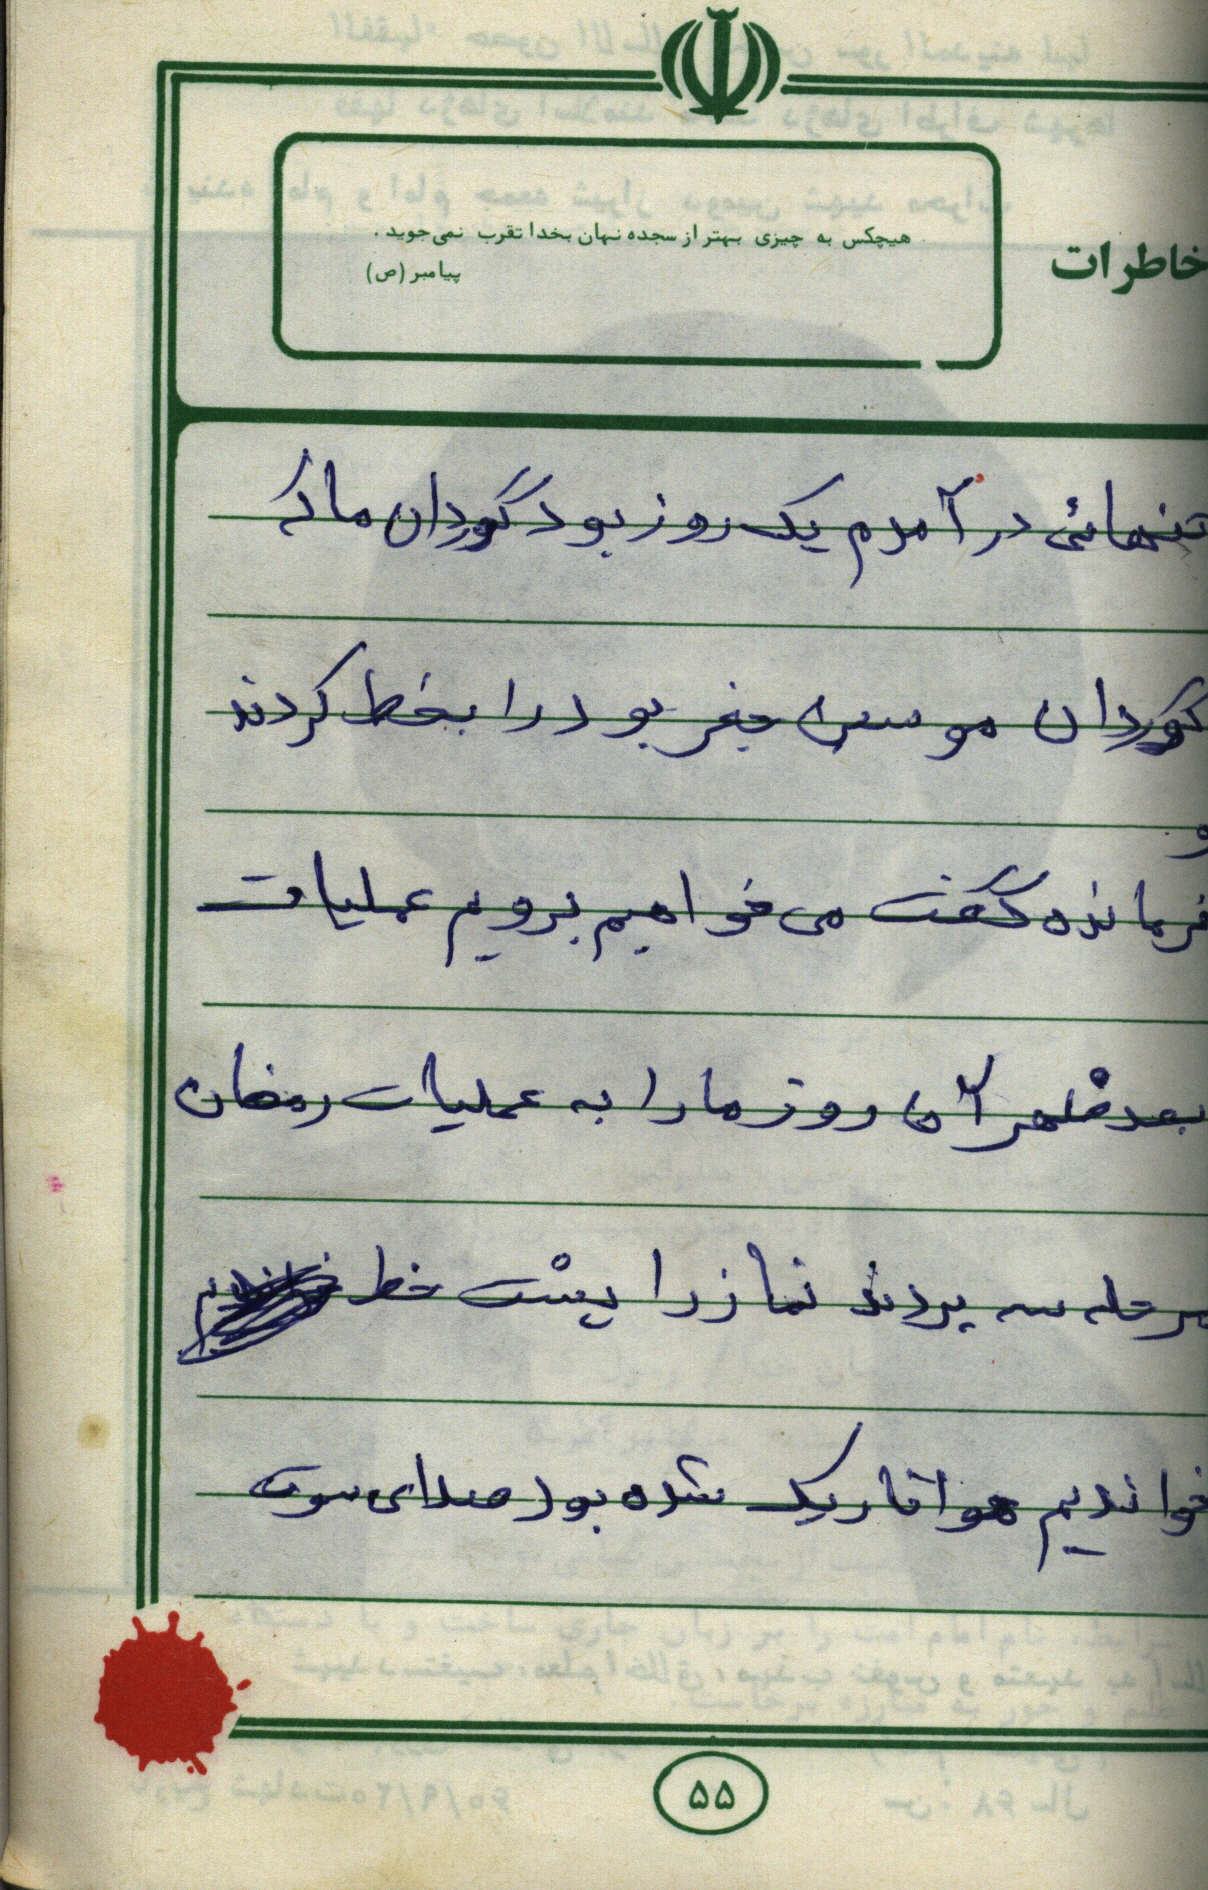 خاطرات
هیچکس به چیزی بهتر از سجده نهان بخدا تقرب نمی‌جوید.
پیامبر (ص)
تنهائی در آمدم یک روز بود گوردان ما که
گوردان موسی جفر بود را بخط کردند
و
فرمانده گفت می خواهیم برویم عملیات
بعد ظهر آن روز ما را به عملیات رمضان
مرحله سه بردند نماز را پشت خط
خواندیم هوا تاریک شده بود صدای سوت
۵۵